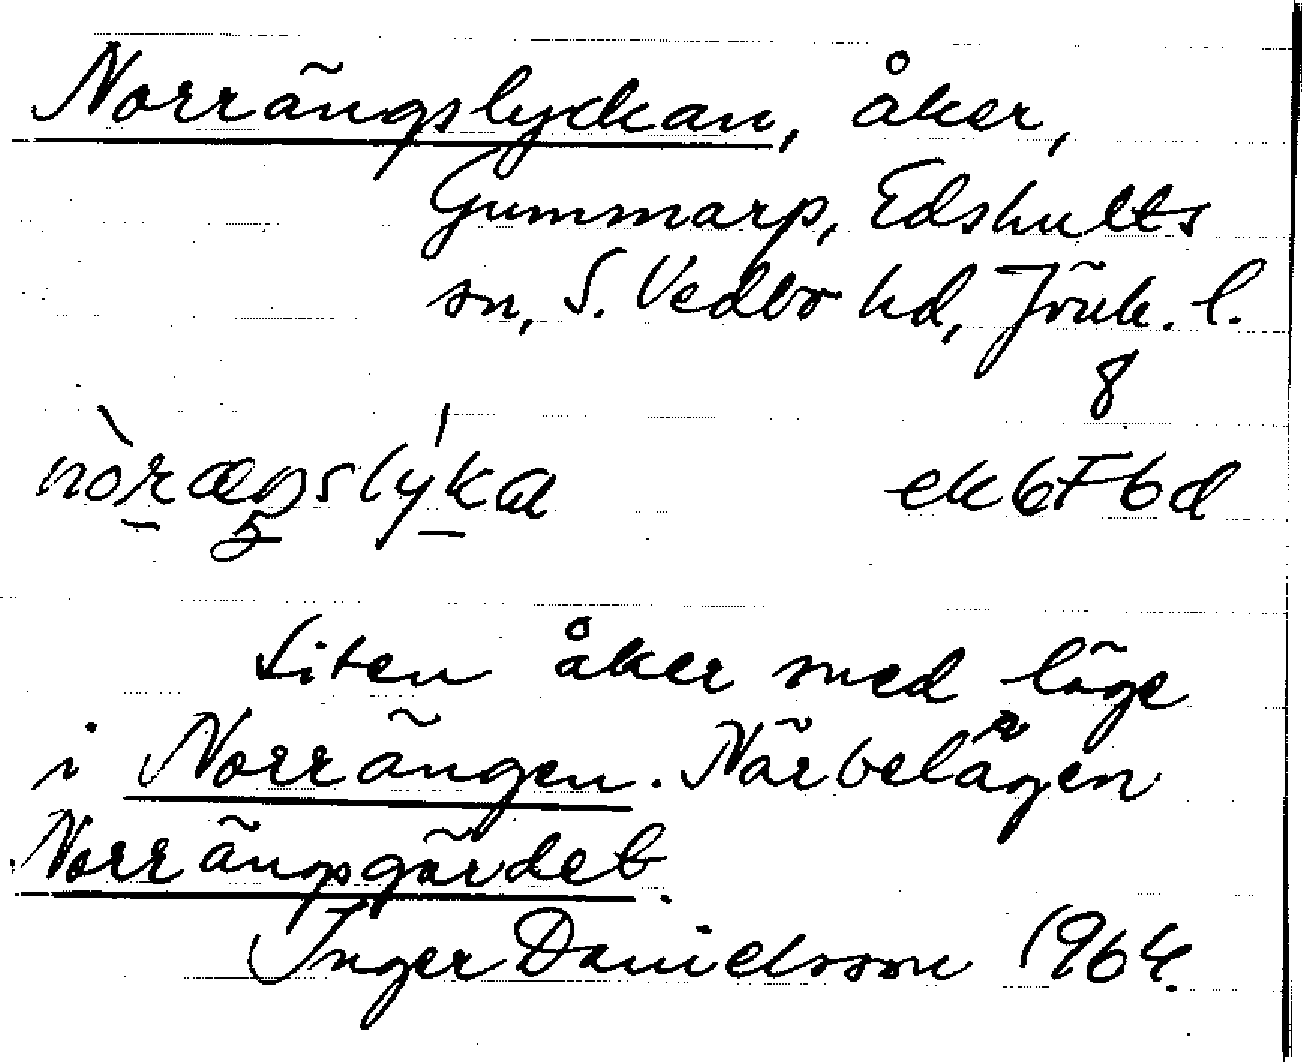 Norrängslyckan, åker,
Gummarp, Edshults
sn, S. Vedbo hd, Jönk. l.
8
ek 6F6d
Liten åker med läge
i Norrängen. Närbelägen är
Norrängsgärdet.
Inger Danielsson 1964.